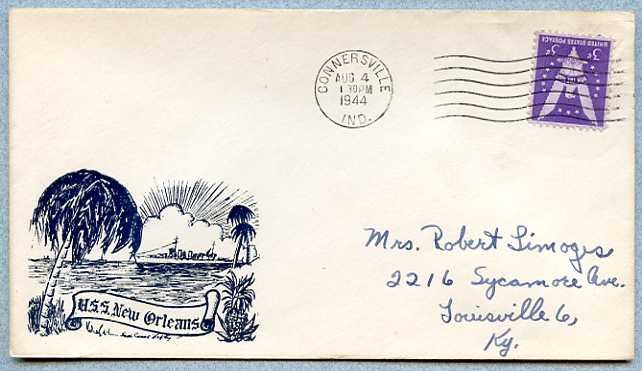 CONNERSVILLE
AUG 4
1 30 PM
1944
IND.
UNITED STATES POSTAGE
3¢ 3¢
Mrs. Robert Limoges
2216 Sycamore Ave.
Louisville 6,
Ky.
U.S.S. New Orleans